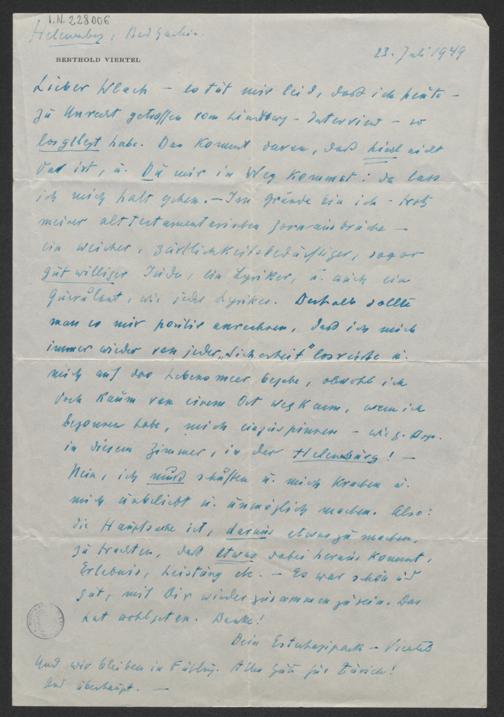 I.N. 228006
Helenenburg, Bad Gastein.
BERTHOLD VIERTEL
23. Juli 1949
Lieber Wlach – es tut mir leid, dass ich heute –
zu Unrecht getroffen vom Lindtberg-Interview – so
losgelegt habe. Das kommt davon, dass hier nicht
Ort ist, u. Du mir in Weg kommst: da lass
ich mich halt gehen. – Im Grunde bin ich – trotz
meiner alttestamentarischen Zornausbrüche –
ein weicher, zärtlichkeitsbedürftiger, sogar
gutwilliger Jude, ein Lyriker, u. auch ein
Querulant, wie jeder Lyriker. Deshalb sollte
man es mir positiv anrechnen, dass ich mich
immer wieder von jeder „Sicherheit" losreisse u.
mich auf das Lebensmeer begebe, obwohl ich
doch kaum von einem Ort weg kann, wenn ich
begonnen habe, mich einzuspinnen – wie z.
in diesem Zimmer, in der Helenenburg! –
Nein, ich muss schuften u. mich kränken u.
mich unbeliebt u. unmöglich machen. Also:
die Hauptsache ist, daraus etwas zu machen.
Zu trachten, dass etwas dabei heraus kommt,
Erlebnis, Leistung etc. – Es war schön und
gut, mit Dir wieder zusammen zu sein. Das
hat wohlgetan. Danke!
Dein Esterhazypark – Viertel
Und wir bleiben in Fühlung. Alles Gute für Zürich!
Und überhaupt. –